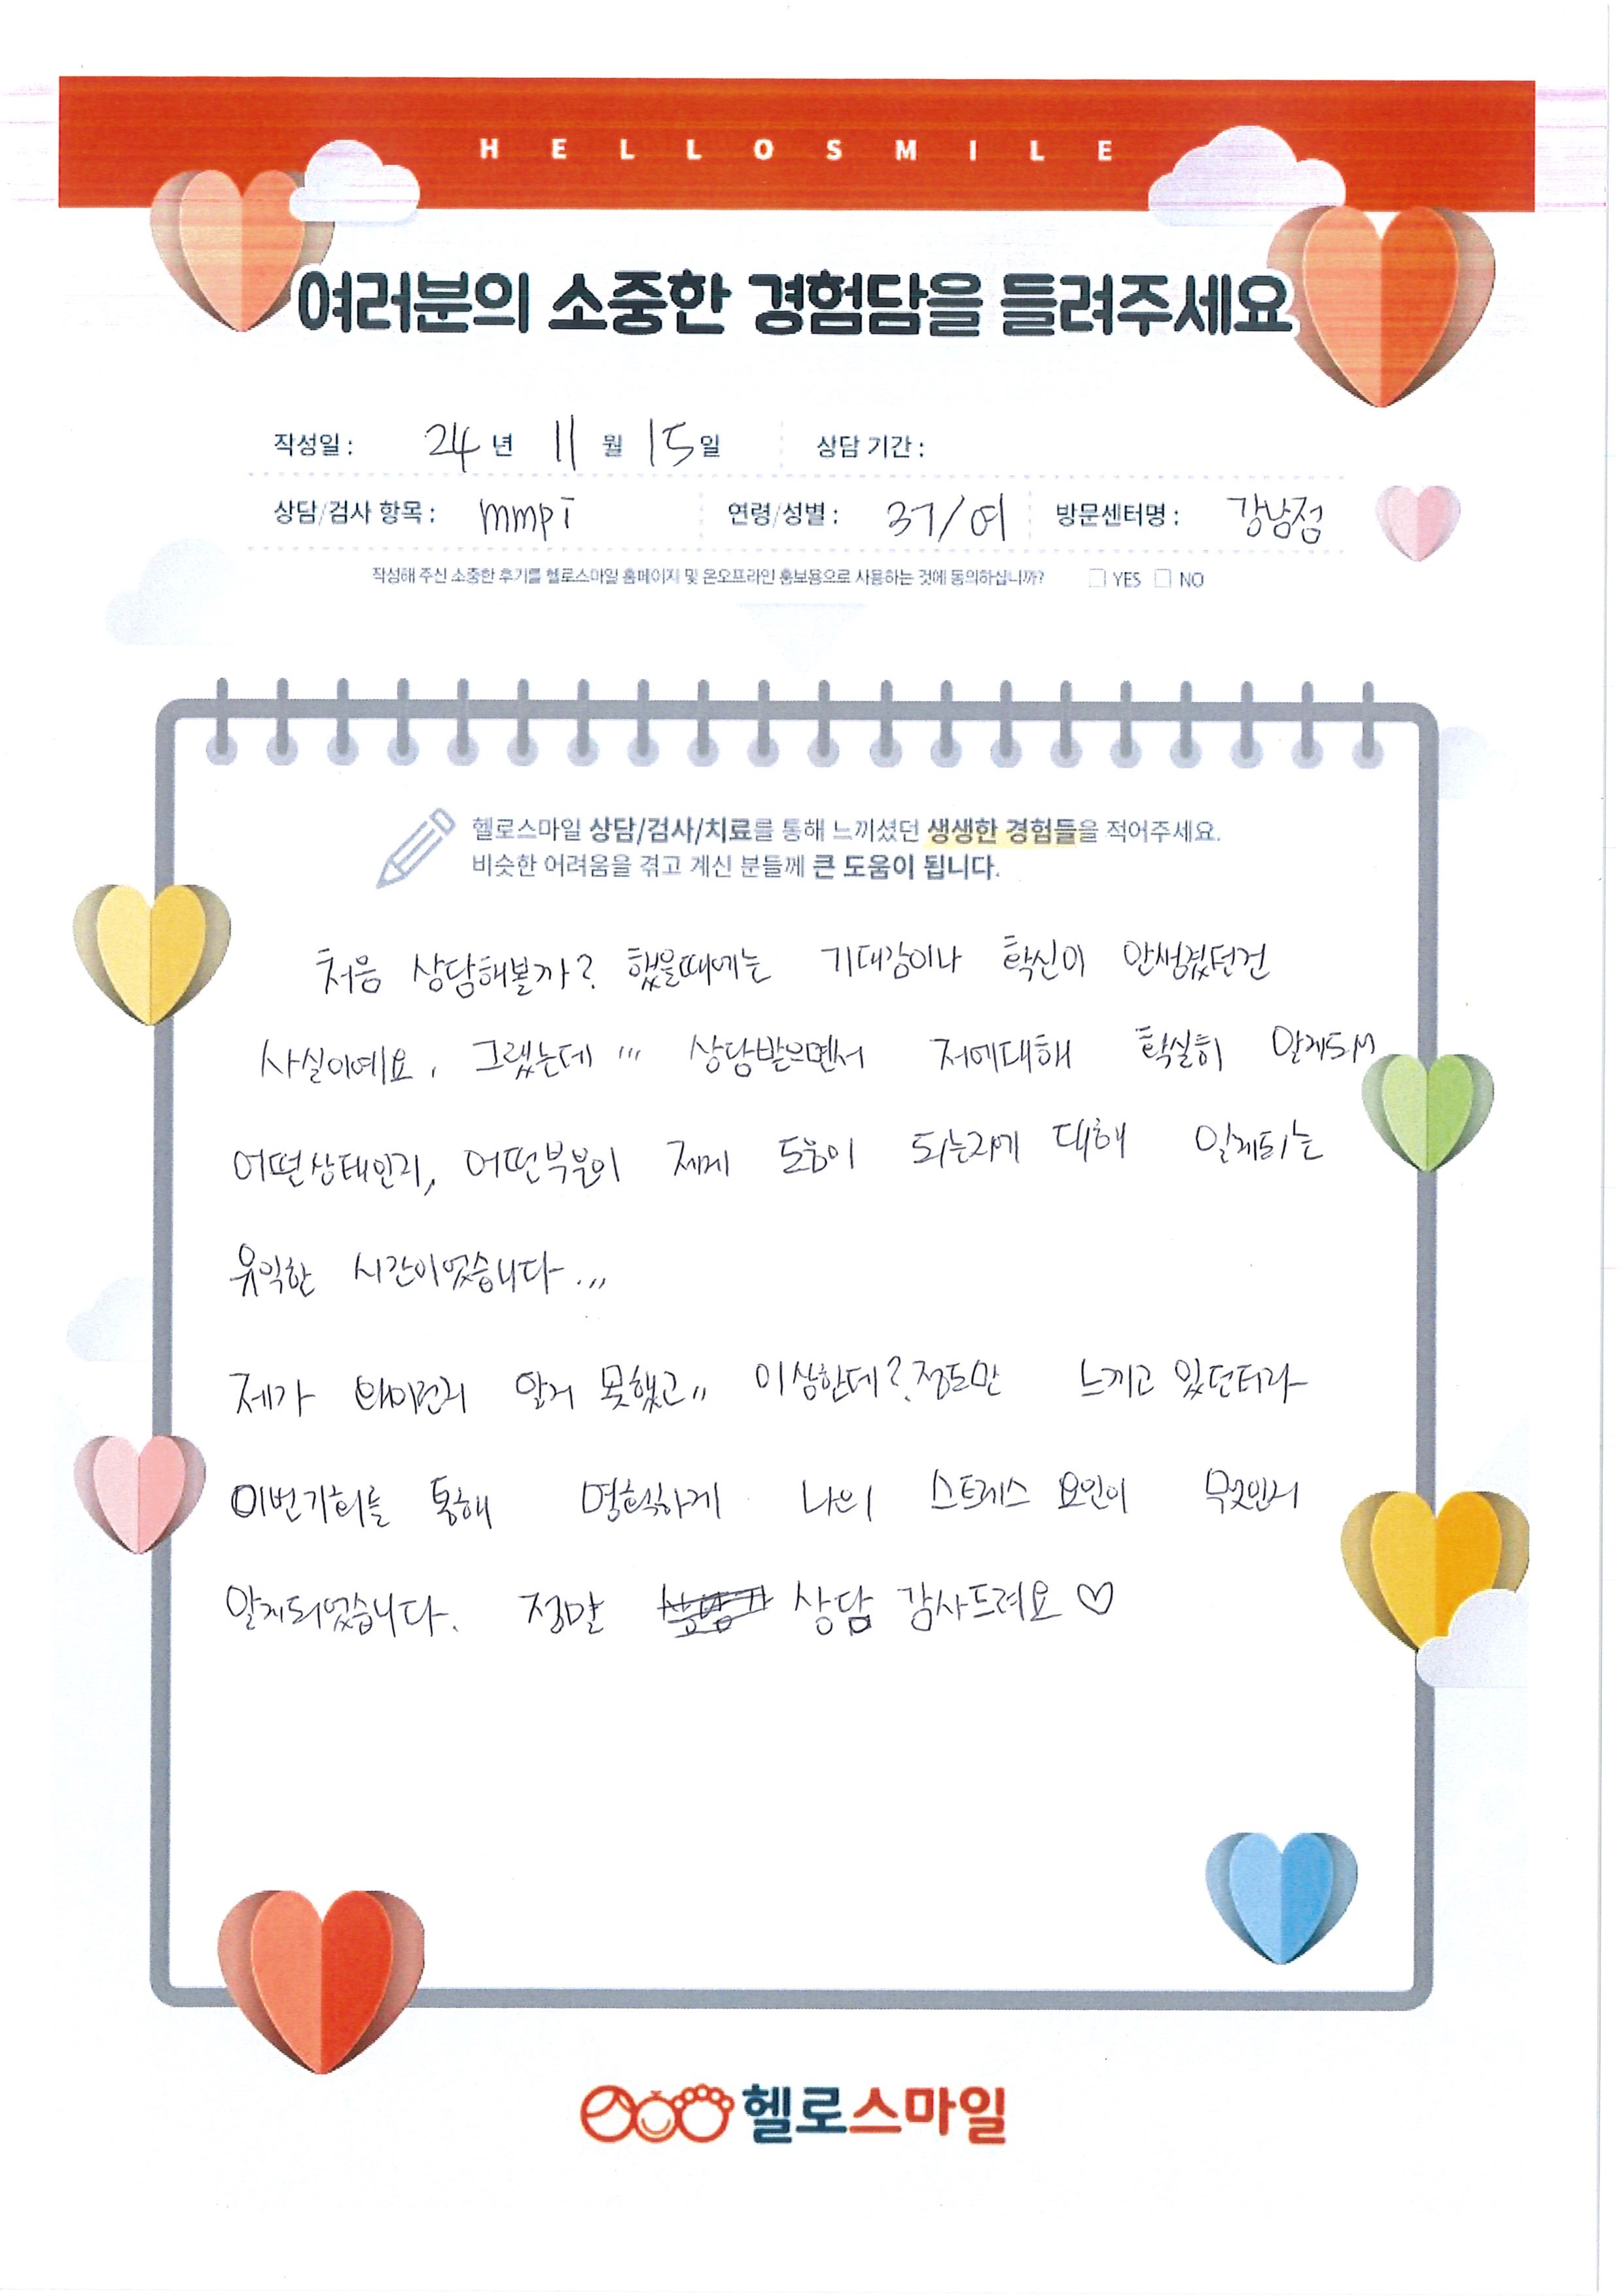 HELLOSMILE
여러분의 소중한 경험담을 들려주세요
작성일 : 24 년 11 월 15 일 상담 기간 :
상담/검사 항목 : mmpi 연령/성별 : 37/여 방문센터명 : 강남점
작성해 주신 소중한 후기를 헬로스마일 홈페이지 및 온오프라인 홍보용으로 사용하는 것에 동의하십니까? □ YES □ NO
헬로스마일 상담/검사/치료를 통해 느끼셨던 생생한 경험들을 적어주세요.
비슷한 어려움을 겪고 계신 분들께 큰 도움이 됩니다.
처음 상담해볼까? 했을때에는 기대감이나 확신이 안생겼던건
사실이예요. 그랬는데... 상담받으면서 저에대해 확실히 알게되서
어떤상태인지, 어떤부분이 제게 도움이 되는지에 대해 알게되는
유익한 시간이었습니다...
제가 왜이런지 알지 못했고.. 이상한데? 정도만 느끼고 있던터라
이번기회를 통해 명확하게 나의 스트레스 요인이 무엇인지
알게되었습니다. 정말 상담 감사드려요 ♡
헬로스마일